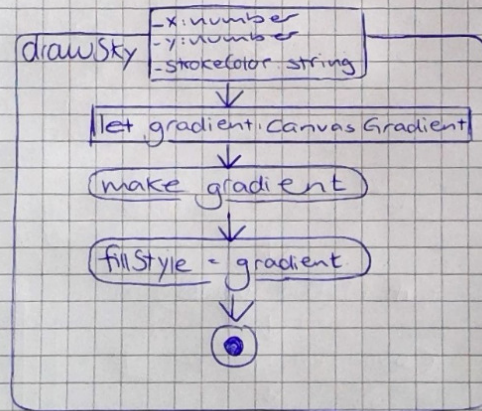 -x:number
-y:number
-strokeColor:string
drawSky
let gradient:CanvasGradient
make gradient
fillStyle = gradient